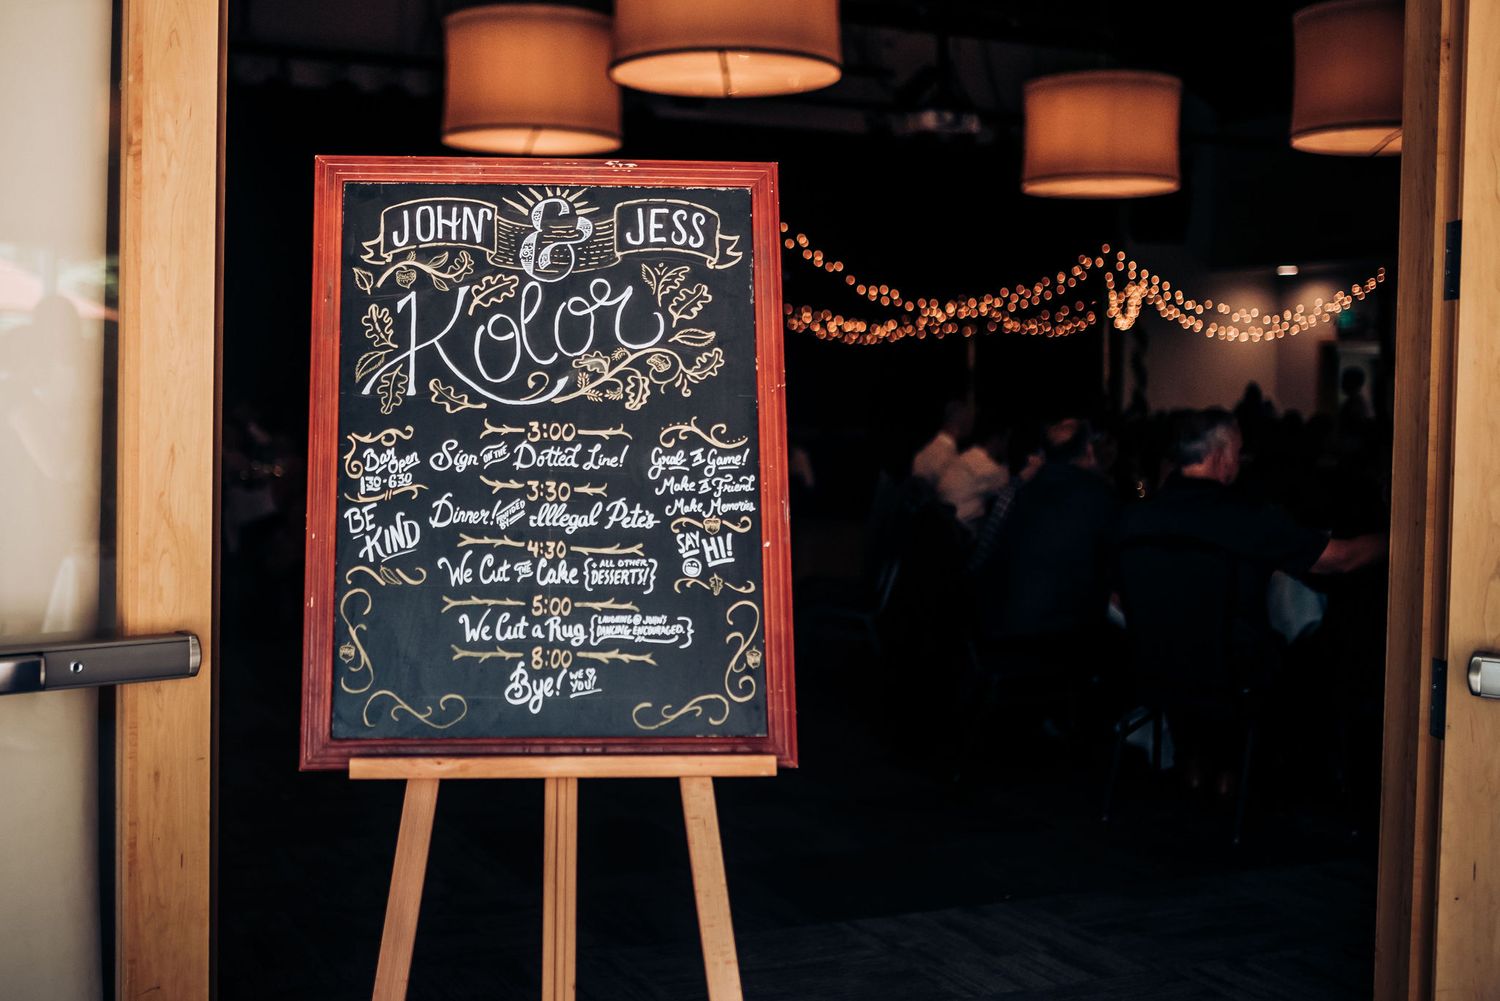 JOHN & JESS
Kolor
3:00
Sign ON THE Dotted Line!
3:30
Dinner! PROVIDED BY Illegal Pete's
4:30
We Cut THE Cake {+ ALL OTHER DESSERTS!}
5:00
We Cut a Rug {LAUGHING @ JOHN'S DANCING ENCOURAGED.}
8:00
Bye! WE ♡ YOU!
Bar Open
1:30-6:30
BE
KIND
Grab A Game!
Make A Friend
Make Memories
SAY
HI!